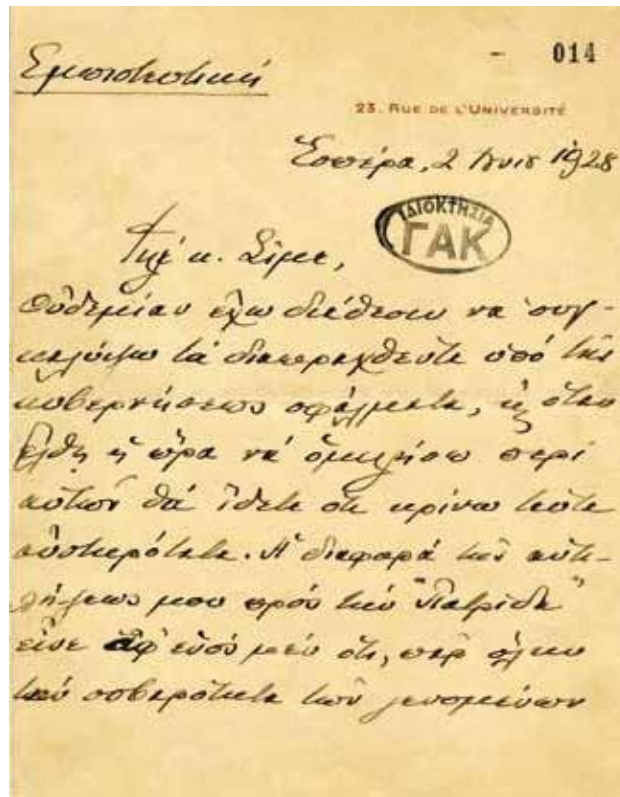 - 014
Ἐμπιστευτική
23, RUE DE L'UNIVERSITÉ
Ἑσπέρα, 2 1928
ΙΔΙΟΚΤΗΣΙΑ
ΓΑΚ
κ. Σίμε,
Οὐδεμίαν ἔχω διάθεσιν νὰ συγ-
καλύψω τὰ διαπραχθέντα ὑπὸ τῆς
κυβερνήσεως σφάλματα, κ ὅταν
ἔλθῃ ἡ ὥρα νὰ ὁμιλήσω περὶ
αὐτῶν θὰ ἴδετε ὅτι κρίνω ταῦτα
αὐστηρότατα. Ἡ διαφορὰ τῆς ἀντι-
λήψεως μου πρὸς τὴν "Πατρίδα"
εἶνε ἀφ' ἑνὸς μὲν ὅτι, παρ' ὅλην
τὴν σοβαρότητα τῶν γενομένων